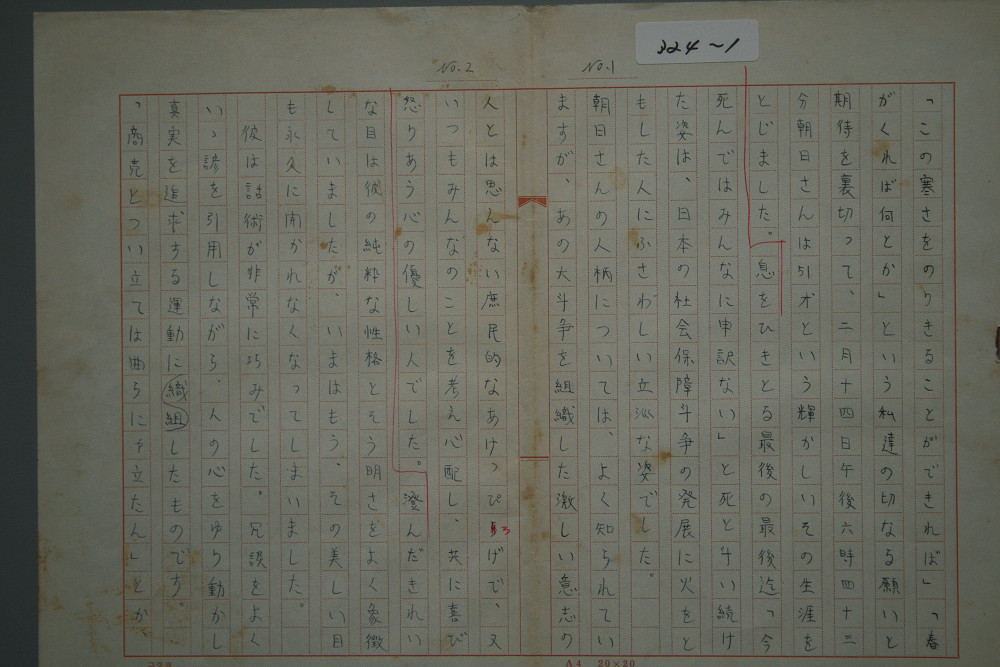 324~1
No.1
「この寒さをのりきることができれば」「春
がくれば何とか」という私達の切なる願いと
期待を裏切って、二月十四日午後六時四十三
分朝日さんは51才という輝かしいその生涯を
とじました。息をひきとる最後の最後迄「今
死んではみんなに申訳ない」と死と斗い続け
た姿は、日本の社会保障斗争の発展に火をと
もした人にふさわしい立派な姿でした。
朝日さんの人柄については、よく知られてい
ますが、あの大斗争を組織した激しい意志の
No.2
人とは思んない庶民的なあけっぴろげで、又
いつもみんなのことを考え心配し、共に喜び
怒りあう心の優しい人でした。澄んだきれい
な目は彼の純粋な性格とそう明さをよく象徴
していましたが、いまはもう、その美しい目
も永久に開かれなくなってしまいました。
彼は話術が非常に巧みでした。冗談をよく
いゝ諺を引用しながら、人の心をゆり動かし
真実を追求する運動に織組したものです。
「商売とつい立ては曲らにゃ立たん」とか
A4 20×20